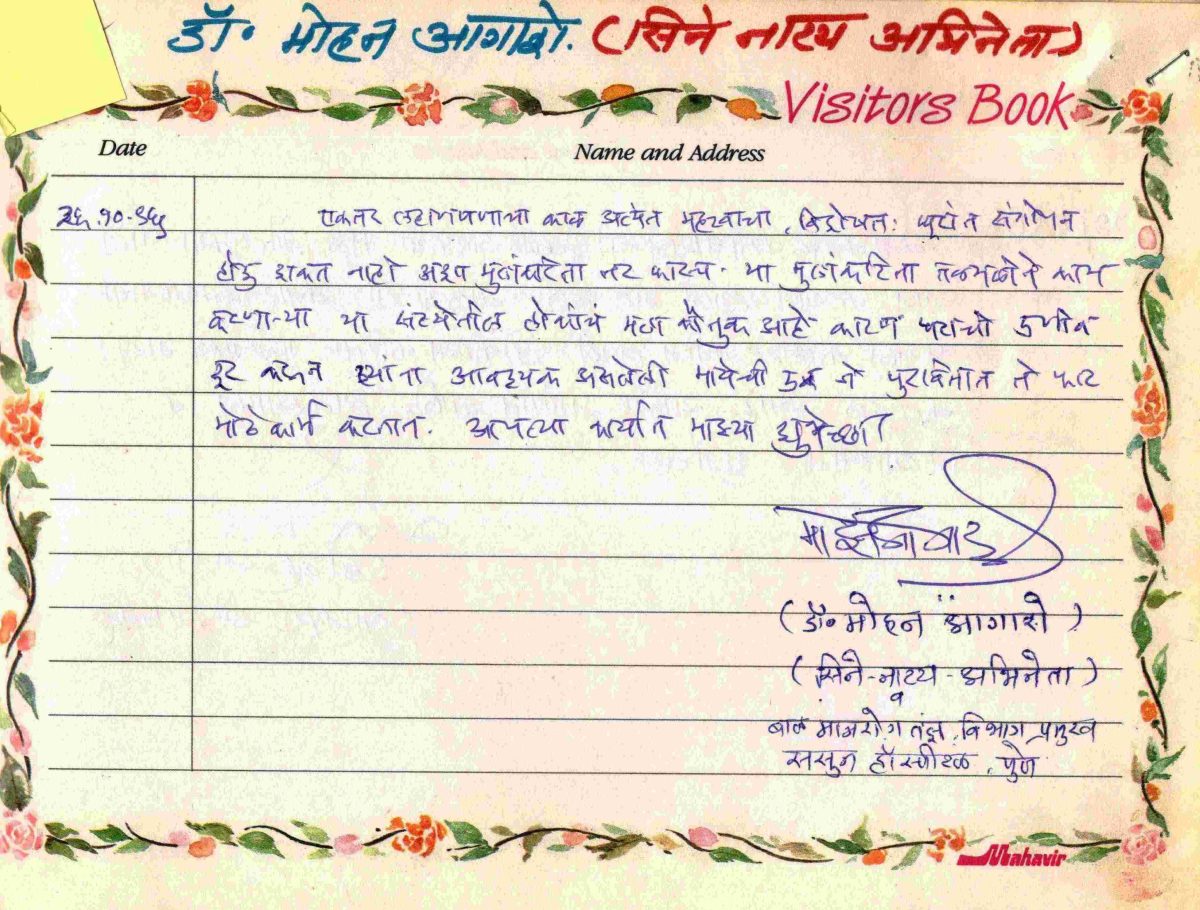 डॉ. मोहन आगाशे. (सिने नाट्य अभिनेता)
Visitors Book
Date
Name and Address
एकतर लहानपणाचा काळ अत्यंत महत्वाचा, विशेषतः घरात संगोपन
होऊ शकत नाही अशा मुलांकरिता तर फारच. या मुलांकरिता तळमळीने काम
करणाऱ्या या संस्थेतील लोकांचे मला कौतुक आहे कारण घराची उणीव
दूर करून त्यांना आवश्यक असलेली मायेची ऊब जे पुरवितात ते फार
मोठे कार्य करतात. आपल्या कार्यास माझ्या शुभेच्छा
(डॉ. मोहन आगाशे)
(सिने-नाट्य-अभिनेता)
व
बाल मानसरोग तज्ञ, विभाग प्रमुख
ससून हॉस्पीटल, पुणे
Mahavir